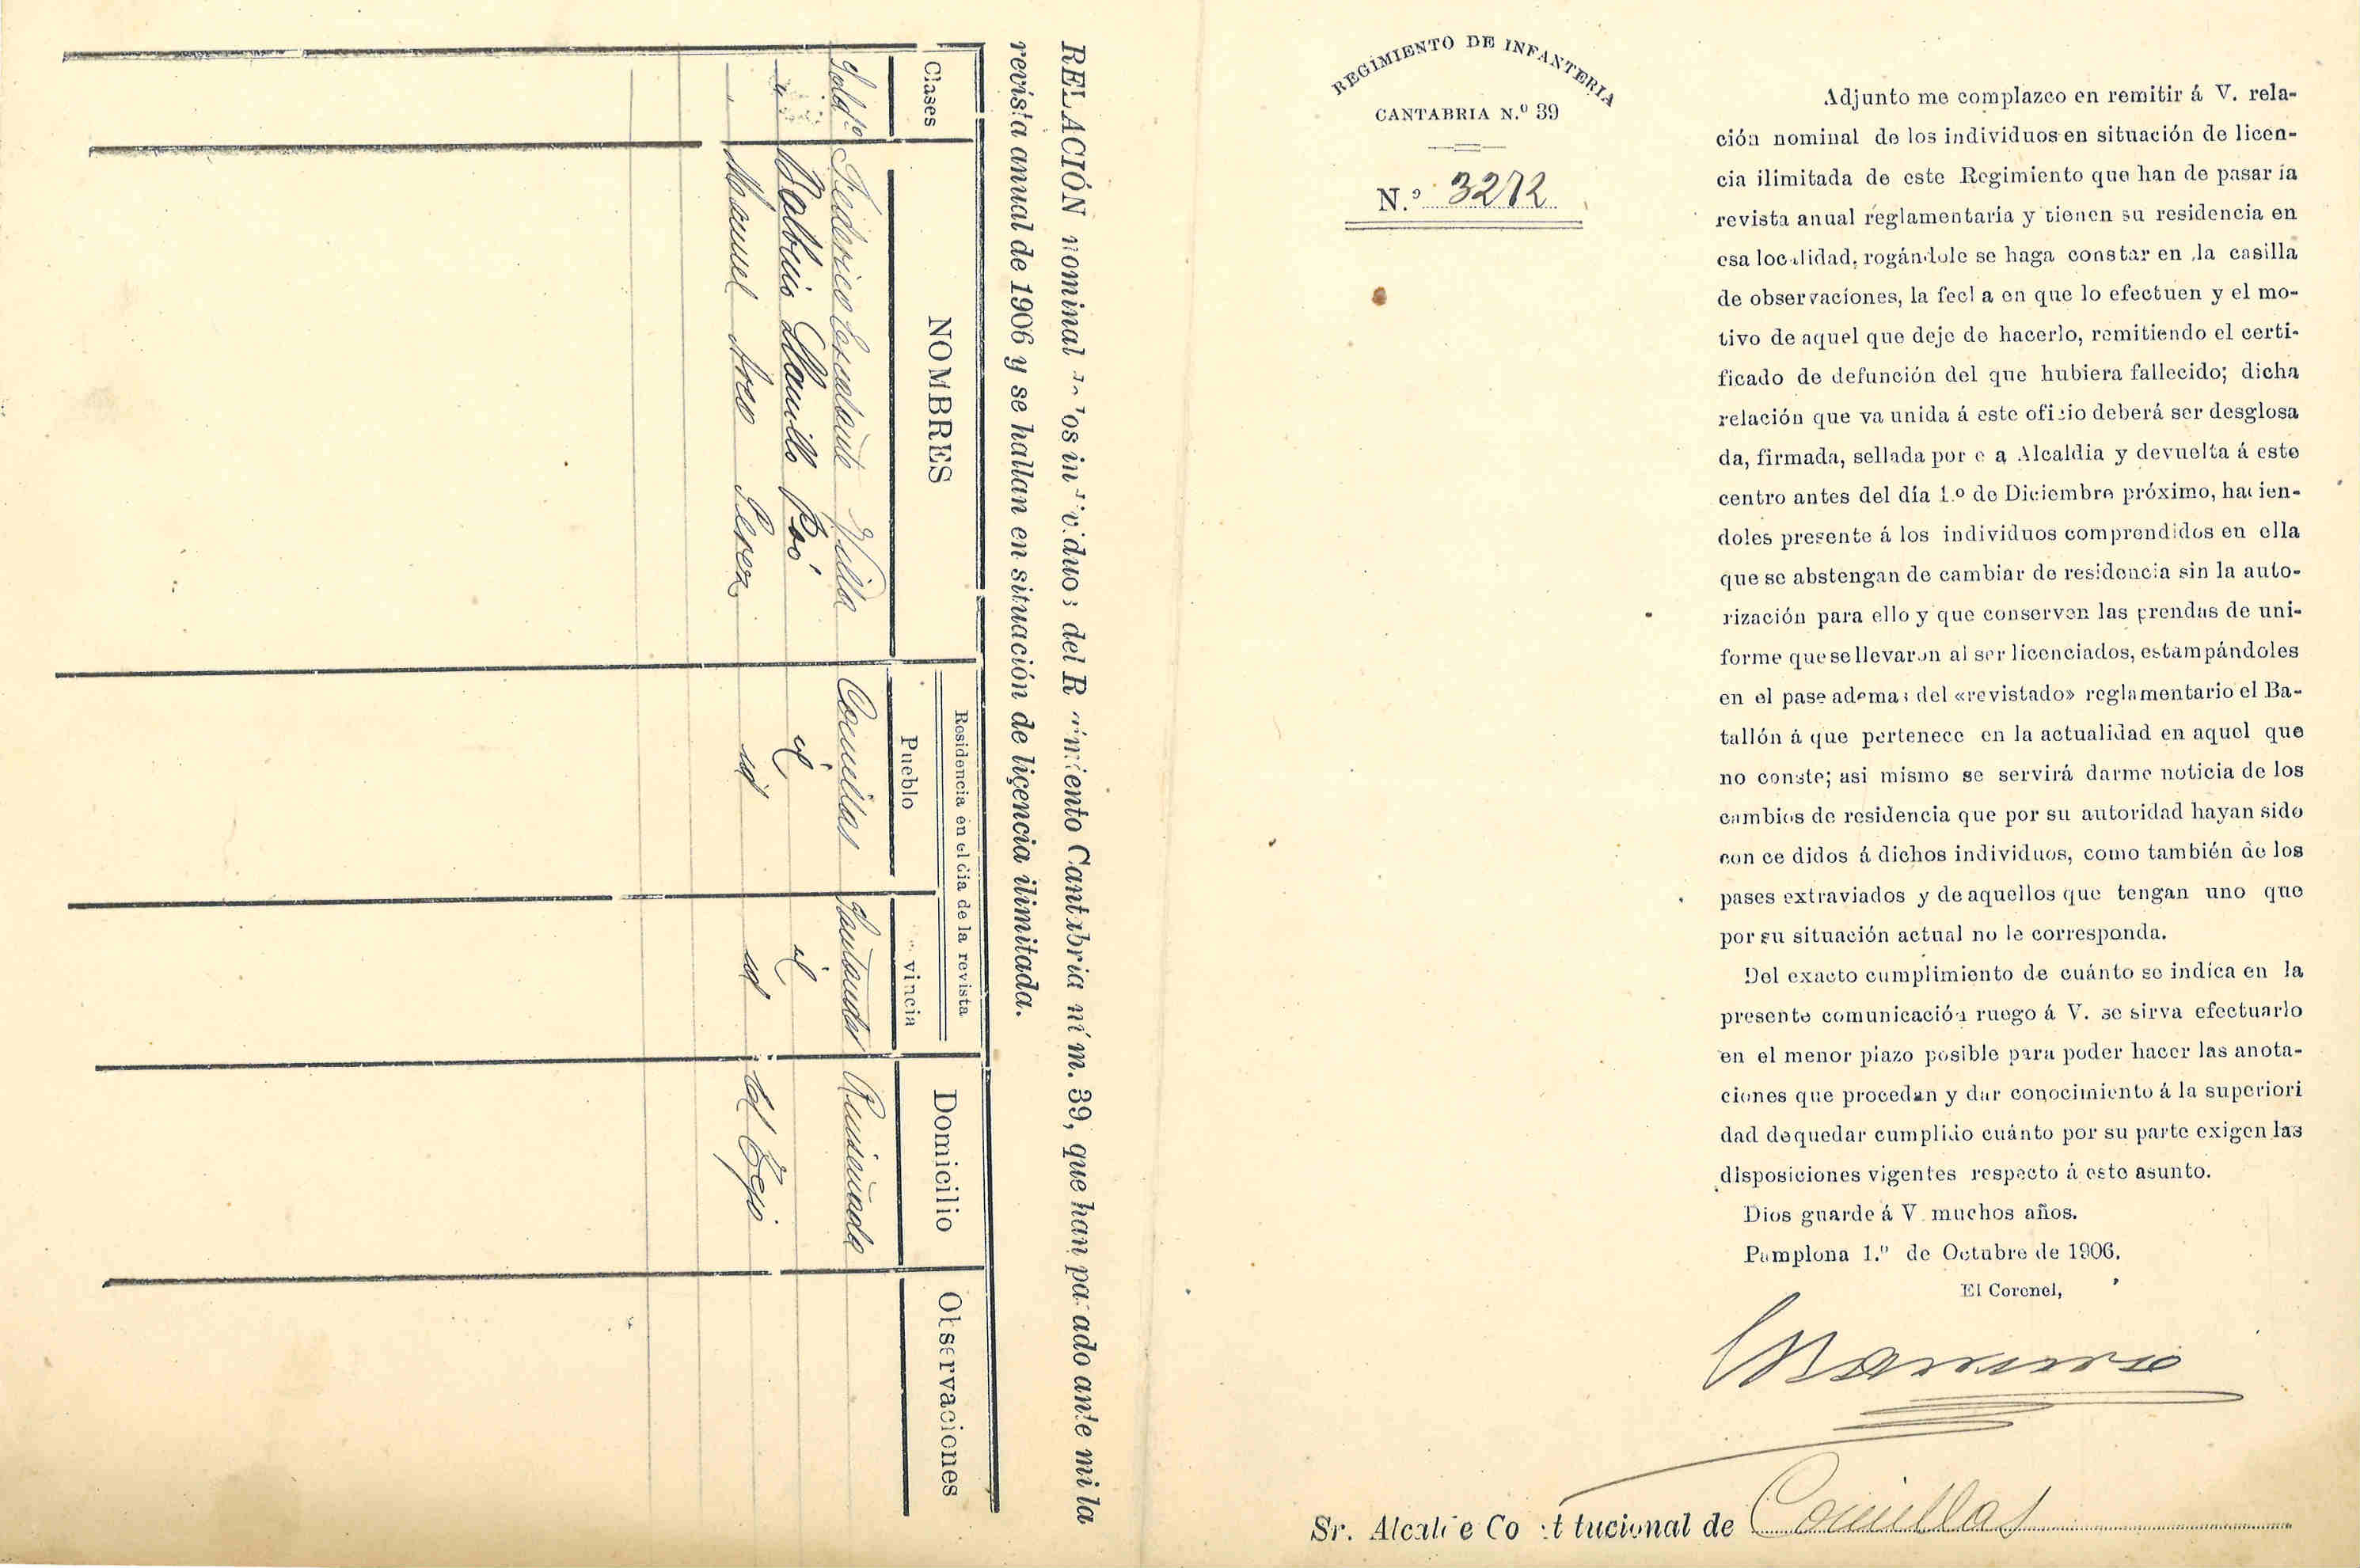 RELACIÓN nominal de los individuos del Regimiento Cantabria núm. 39, que han pasado ante mi la
revista anual de 1906 y se hallan en situación de licencia ilimitada.
Clases NOMBRES Residencia en el dia de la revista Domicilio Observaciones
Pueblo Provincia
Sold.º Federico Escalante Villa Comillas Santander Ruiseñada
" Balbino Llanillo Poó id id
Manuel Arco Perez id id El Tejo
REGIMIENTO DE INFANTERIA
CANTABRIA N.º 39
N.º 3272
Adjunto me complazco en remitir á V. rela-
ción nominal de los individuos en situación de licen-
cia ilimitada de este Regimiento que han de pasar la
revista anual reglamentaría y tienen su residencia en
esa localidad, rogándole se haga constar en la casilla
de observaciones, la fecha en que lo efectuen y el mo-
tivo de aquel que deje de hacerlo, remitiendo el certi-
ficado de defunción del que hubiera fallecido; dicha
relación que va unida á este oficio deberá ser desglosa
da, firmada, sellada por esa Alcaldia y devuelta á este
centro antes del día 1.º de Diciembre próximo, hacien-
doles presente á los individuos comprendidos en ella
que se abstengan de cambiar de residencia sin la auto-
rización para ello y que conserven las prendas de uni-
forme que se llevaron al ser licenciados, estampándoles
en el pase ademas del «revistado» reglamentario el Ba-
tallón á que pertenece en la actualidad en aquel que
no conste; asi mismo se servirá darme noticia de los
cambios de residencia que por su autoridad hayan sido
con ce didos á dichos individuos, como también de los
pases extraviados y de aquellos que tengan uno que
por su situación actual no le corresponda.
Del exacto cumplimiento de cuánto se indíca en la
presente comunicación ruego á V. se sirva efectuarlo
en el menor plazo posible para poder hacer las anota-
ciones que procedan y dar conocimiento á la superiori
dad de quedar cumplido cuánto por su parte exigen las
disposiciones vigentes respecto á este asunto.
Dios guarde á V. muchos años.
Pamplona 1.º de Octubre de 1906.
El Coronel,
Sr. Alcalde Constitucional de Comillas